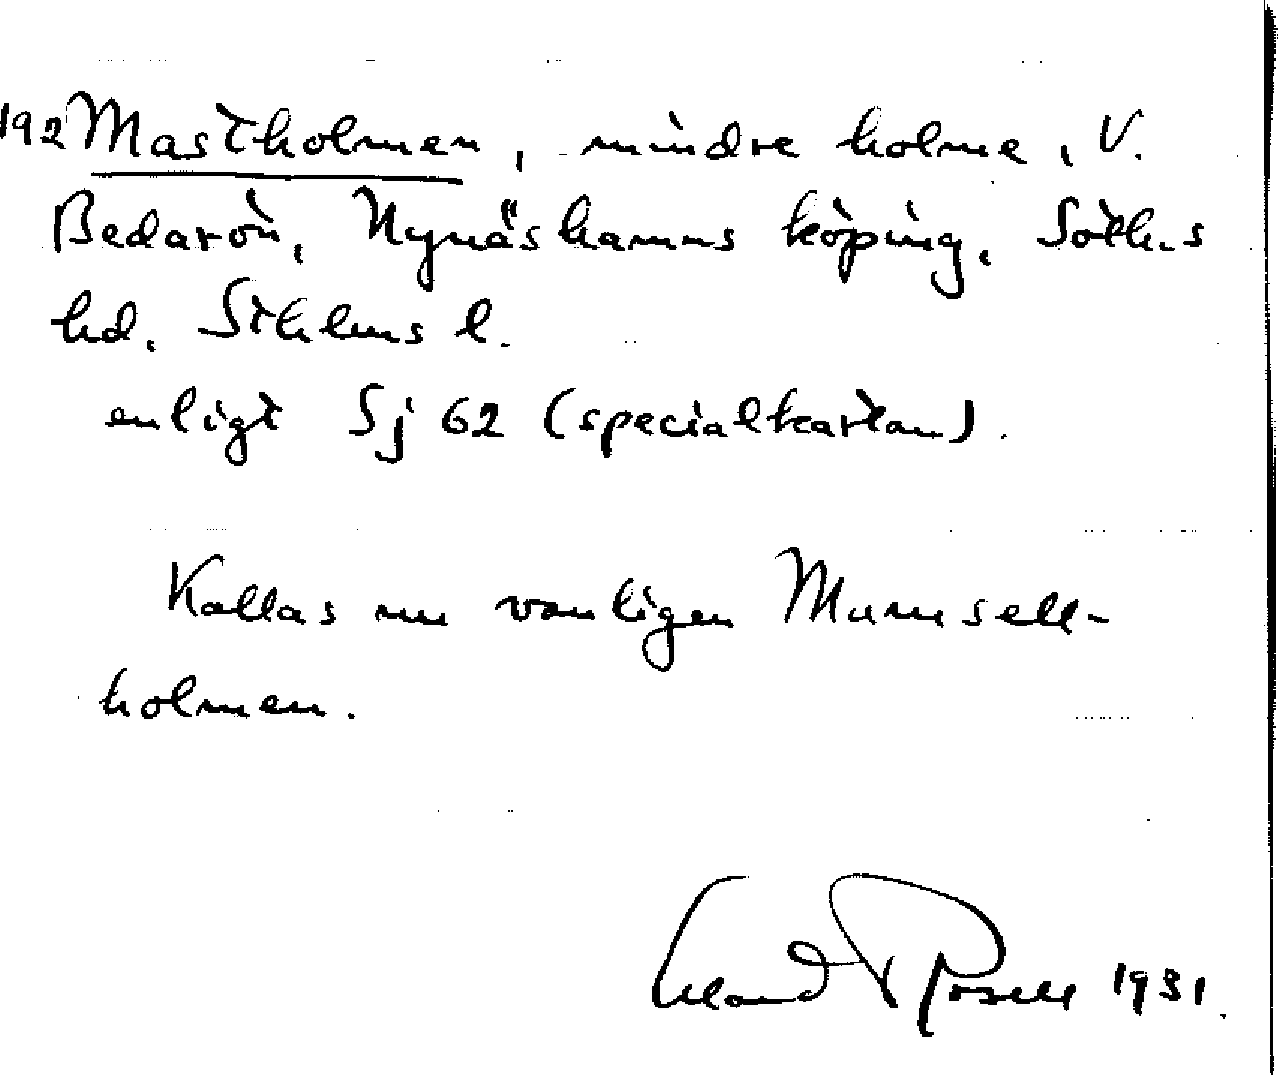 192 Mastholmen, mindre holme, V.
Bedarön, Nynäshamns köping, Soth.s
hd. Sthlms l.
enligt Sj 62 (specialkartan).
Kallas nu vanligen Mamsell-
holmen.
Erland Rosell 1931.